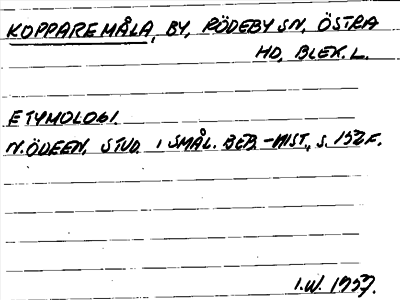 KOPPAREMÅLA, BY, RÖDEBY SN, ÖSTRA
HD, BLEK. L.
ETYMOLOGI.
N. ÖDEEN, STUD. I SMÅL. BEB.-HIST., S. 152 F.
I.W. 1957.